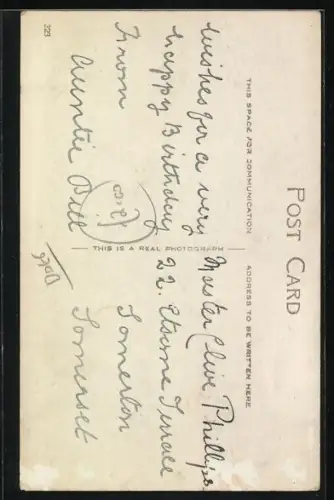 POST CARD
THIS SPACE FOR COMMUNICATION
ADDRESS TO BE WRITTEN HERE
wishes for a very
happy Birthday
From
Auntie Bill
THIS IS A REAL PHOTOGRAPH
Master Clive Phillips.
22. Terrace
Somerton
Somerset
223